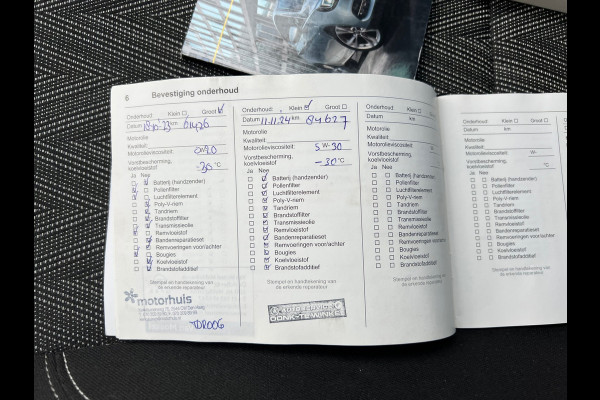 6 Bevestiging onderhoud
Onderhoud: Klein Groot
Datum km
Motorolie
Kwaliteit:
Motorolieviscositeit: 0W20
Vorstbescherming,
koelvloeistof -30 °C
Ja Nee
Batterij (handzender)
Pollenfilter
Luchtfilterelement
Poly-V-riem
Tandriem
Brandstoffilter
Transmissieolie
Remvloeistof
Bandenreparatieset
Remvoeringen voor/achter
Bougies
Koelvloeistof
Brandstofadditief
Stempel en handtekening van
de erkende reparateur
motorhuis
Onderhoud: Klein Groot
Datum 11.11.24 km 84627
Motorolie
Kwaliteit:
Motorolieviscositeit: 5 W-30
Vorstbescherming,
koelvloeistof -30 °C
Ja Nee
Batterij (handzender)
Pollenfilter
Luchtfilterelement
Poly-V-riem
Tandriem
Brandstoffilter
Transmissieolie
Remvloeistof
Bandenreparatieset
Remvoeringen voor/achter
Bougies
Koelvloeistof
Brandstofadditief
Stempel en handtekening van
de erkende reparateur
AUTO SERVICE
DONK-TE WINKEL
Onderhoud: Klein Groot
Datum km
Motorolie
Kwaliteit:
Motorolieviscositeit: W-
Vorstbescherming,
koelvloeistof °C
Ja Nee
Batterij (handzender)
Pollenfilter
Luchtfilterelement
Poly-V-riem
Tandriem
Brandstoffilter
Transmissieolie
Remvloeistof
Bandenreparatieset
Remvoeringen voor/achter
Bougies
Koelvloeistof
Brandstofadditief
Stempel en handtekening van
de erkende reparateur
Onderhoud: Klein Groot
Datum km
Motorolie
Kwaliteit:
Motorolieviscositeit: W-
Vorstbescherming,
koelvloeistof °C
Ja Nee
Batterij (handzender)
Pollenfilter
Luchtfilterelement
Poly-V-riem
Tandriem
Brandstoffilter
Transmissieolie
Remvloeistof
Bandenreparatieset
Remvoeringen voor/achter
Bougies
Koelvloeistof
Brandstofadditief
Stempel en handtekening van
de erkende reparateur